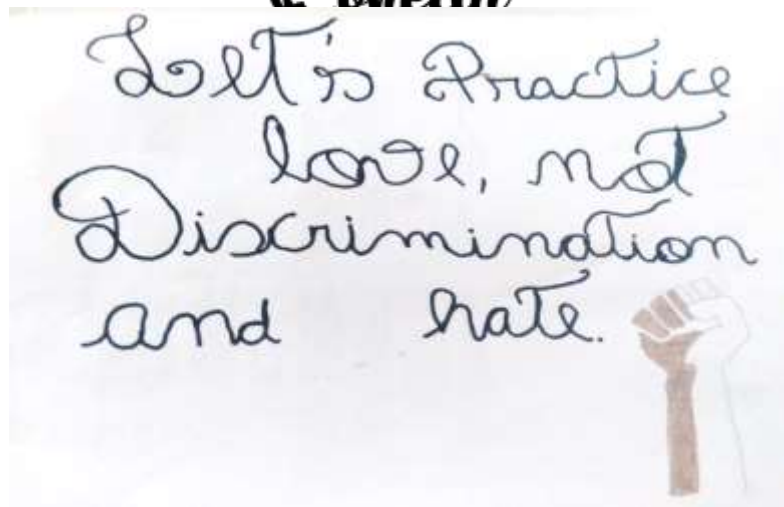 Let's Practice
love, not
Discrimination
and hate.